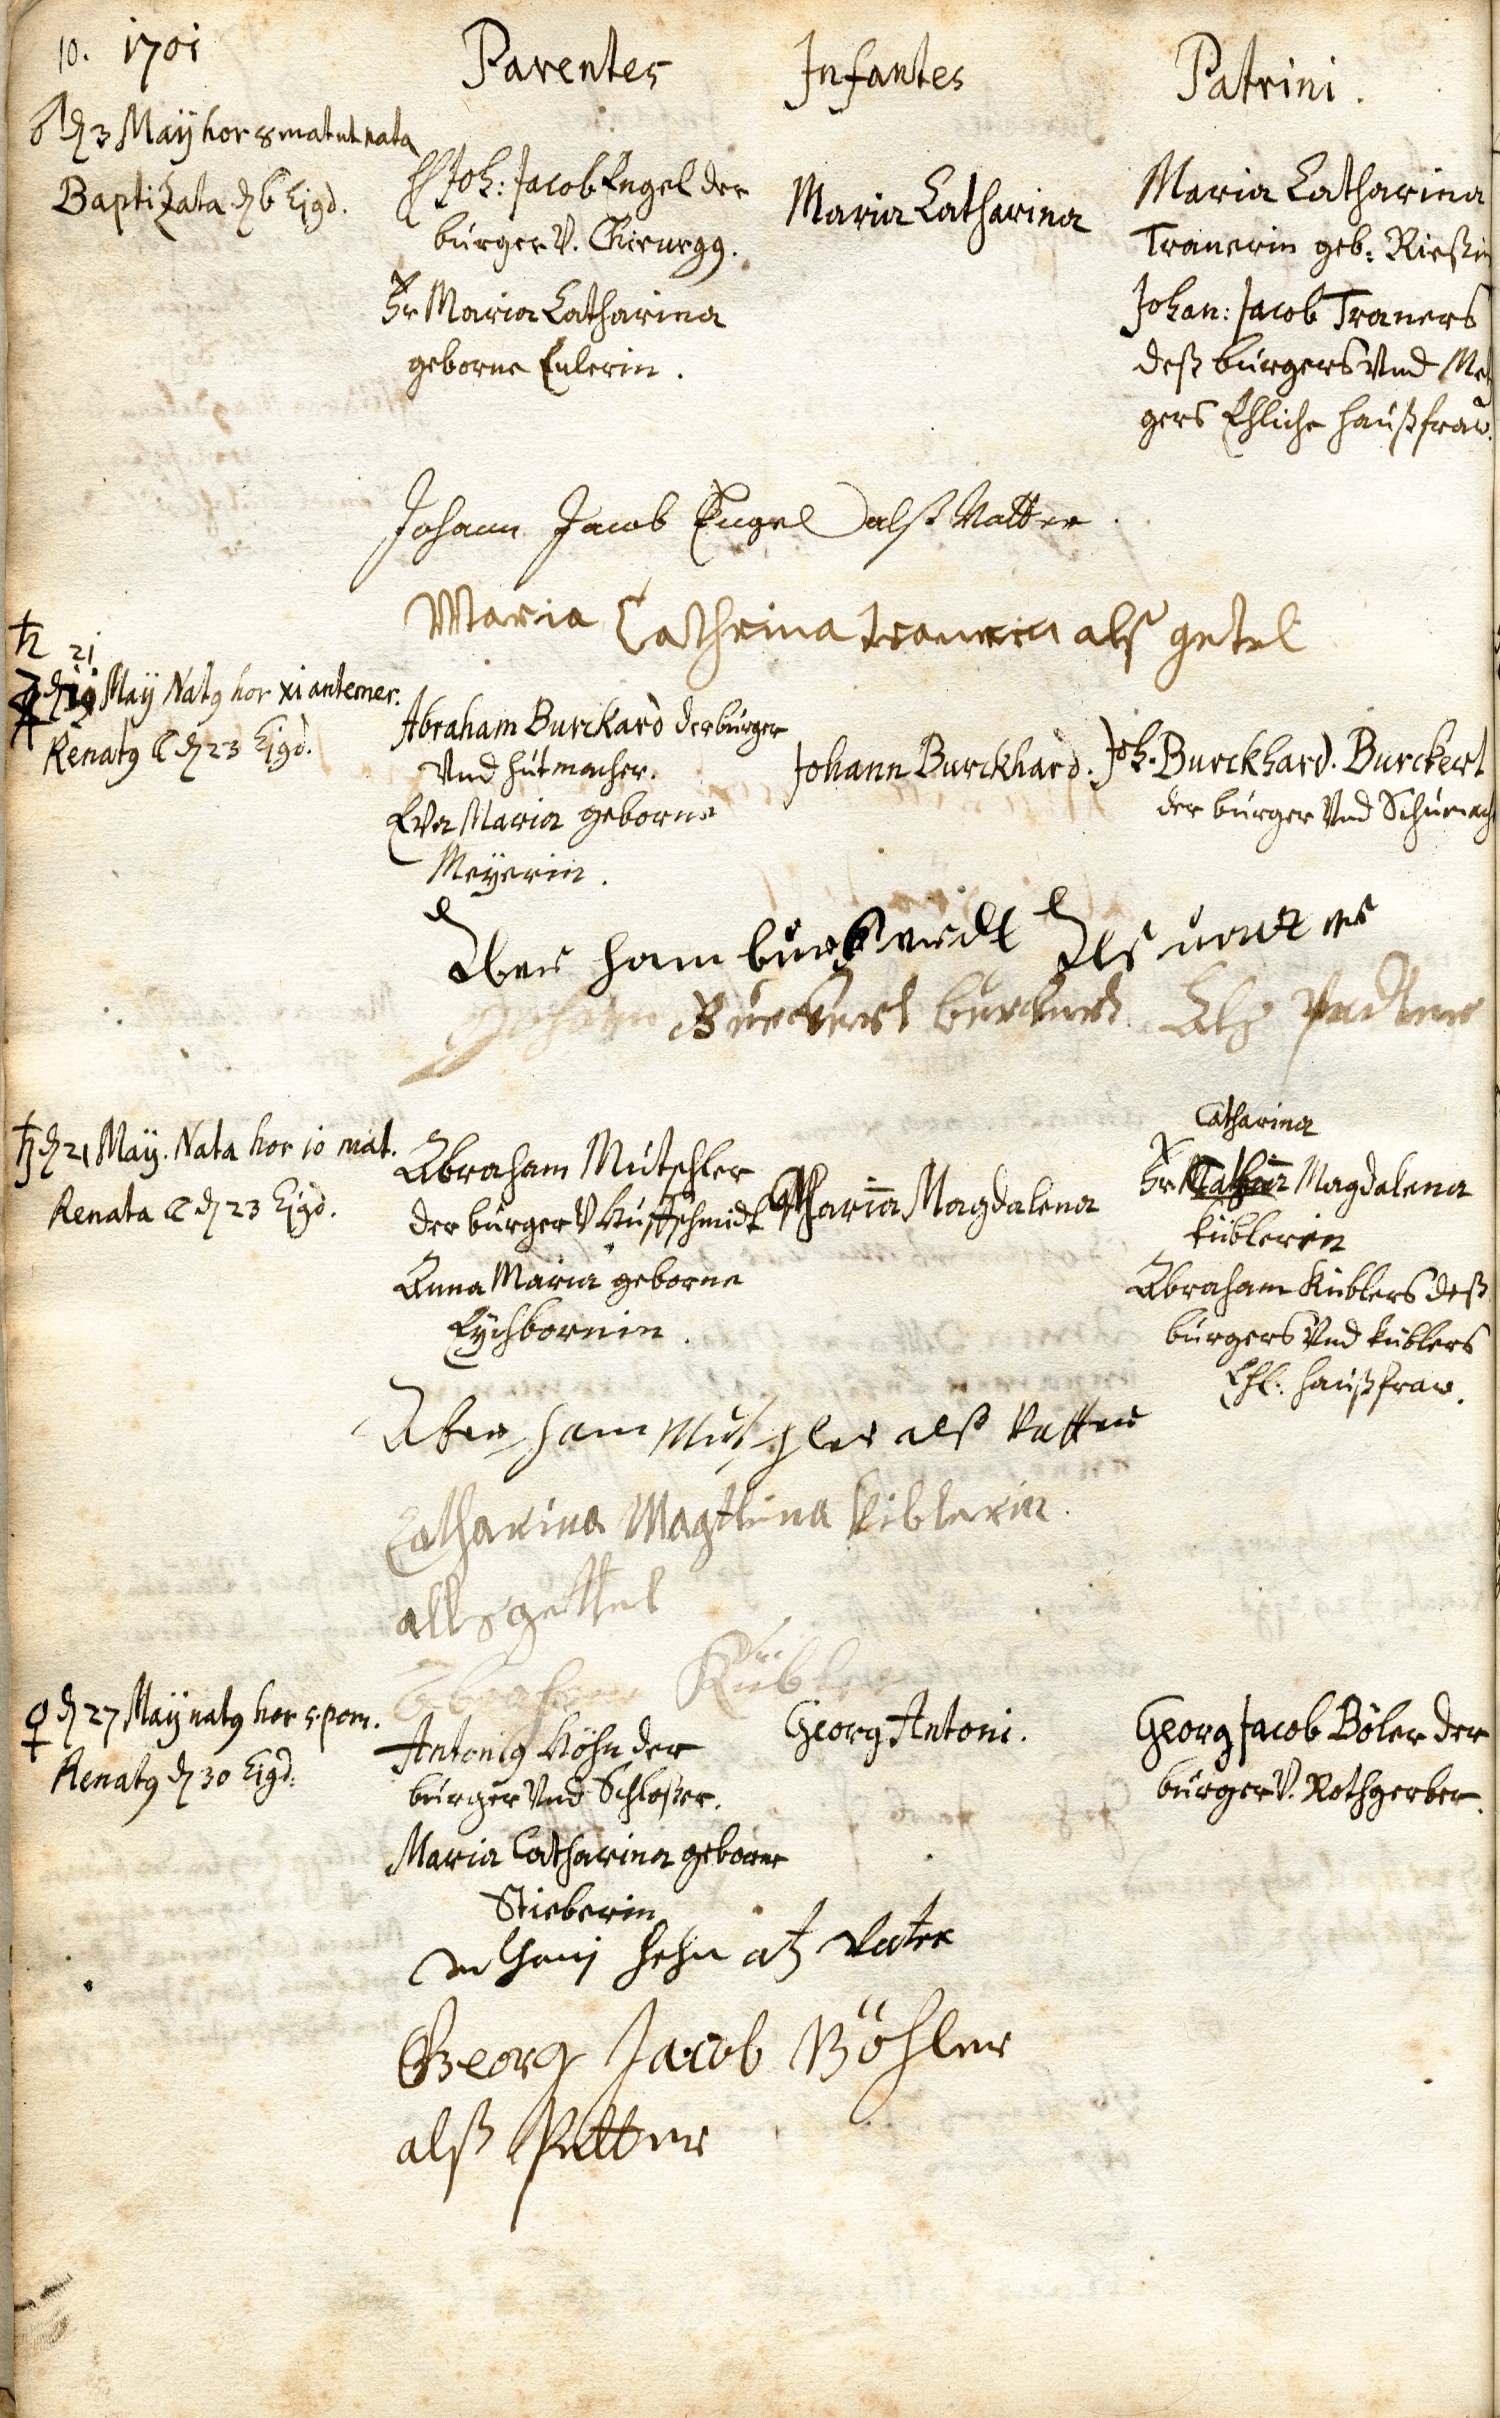 10. 1701
Parentes
Infantes
Patrini.
♂ d 3 Maÿ hor 8 matut nata
Baptizata d 6 Ejgd.
H Joh: Jacob Engel der
burger V. Chirurgg.
Fr Maria Catharina
geborne Eulerin.
Maria Catharina
Maria Catharina
Tranerin geb: Rießin
Johan: Jacob Traners
deß burgers Vnd Met
gers Ehliche haußfraw.
Johann Jacob Engel alß Vatter
Maria Cathrina tranerin alß getel
♄ 21
Maÿ Natg hor xi antemer.
Renatg ☾ d 23 Ejgd.
Abraham Burckard der burger
Vnd hutmacher.
Eva Maria geborne
Meÿerin.
Johann Burckhard.
Joh. Burckhard. Burckert
der burger Vnd Schumach
Abra ham
Johann Burckert burckert Alß
♄ d 21 Maÿ. Nata hor 10 mat.
Renata ☾ d 23 Ejgd.
Abraham Mutschler
der burger V Huffschmidt
Anna Maria geborne
Eÿchbornin.
Catharina Magdalena
Catharina
Fr Magdalena
küblerin
Abraham Küblers deß
burgers Vnd küblers
Ehl: haußfraw.
Abra ham Mutschler alß Vatter
Catharina Magtlena kiblerin
allß gettel
Abraham Kübler
♀ d 27 Maÿ natg hor 5 pom.
Renatg d 30 Ejgd.
Antonig Höhn der
burger Vnd Schloßer.
Maria Catharina geborne
Stieberin
Georg Antoni.
Georg Jacob Böler der
burger V. Rothgerber.
anthonj hehn alß Vater
Georg Jacob Böhler
alß Petter